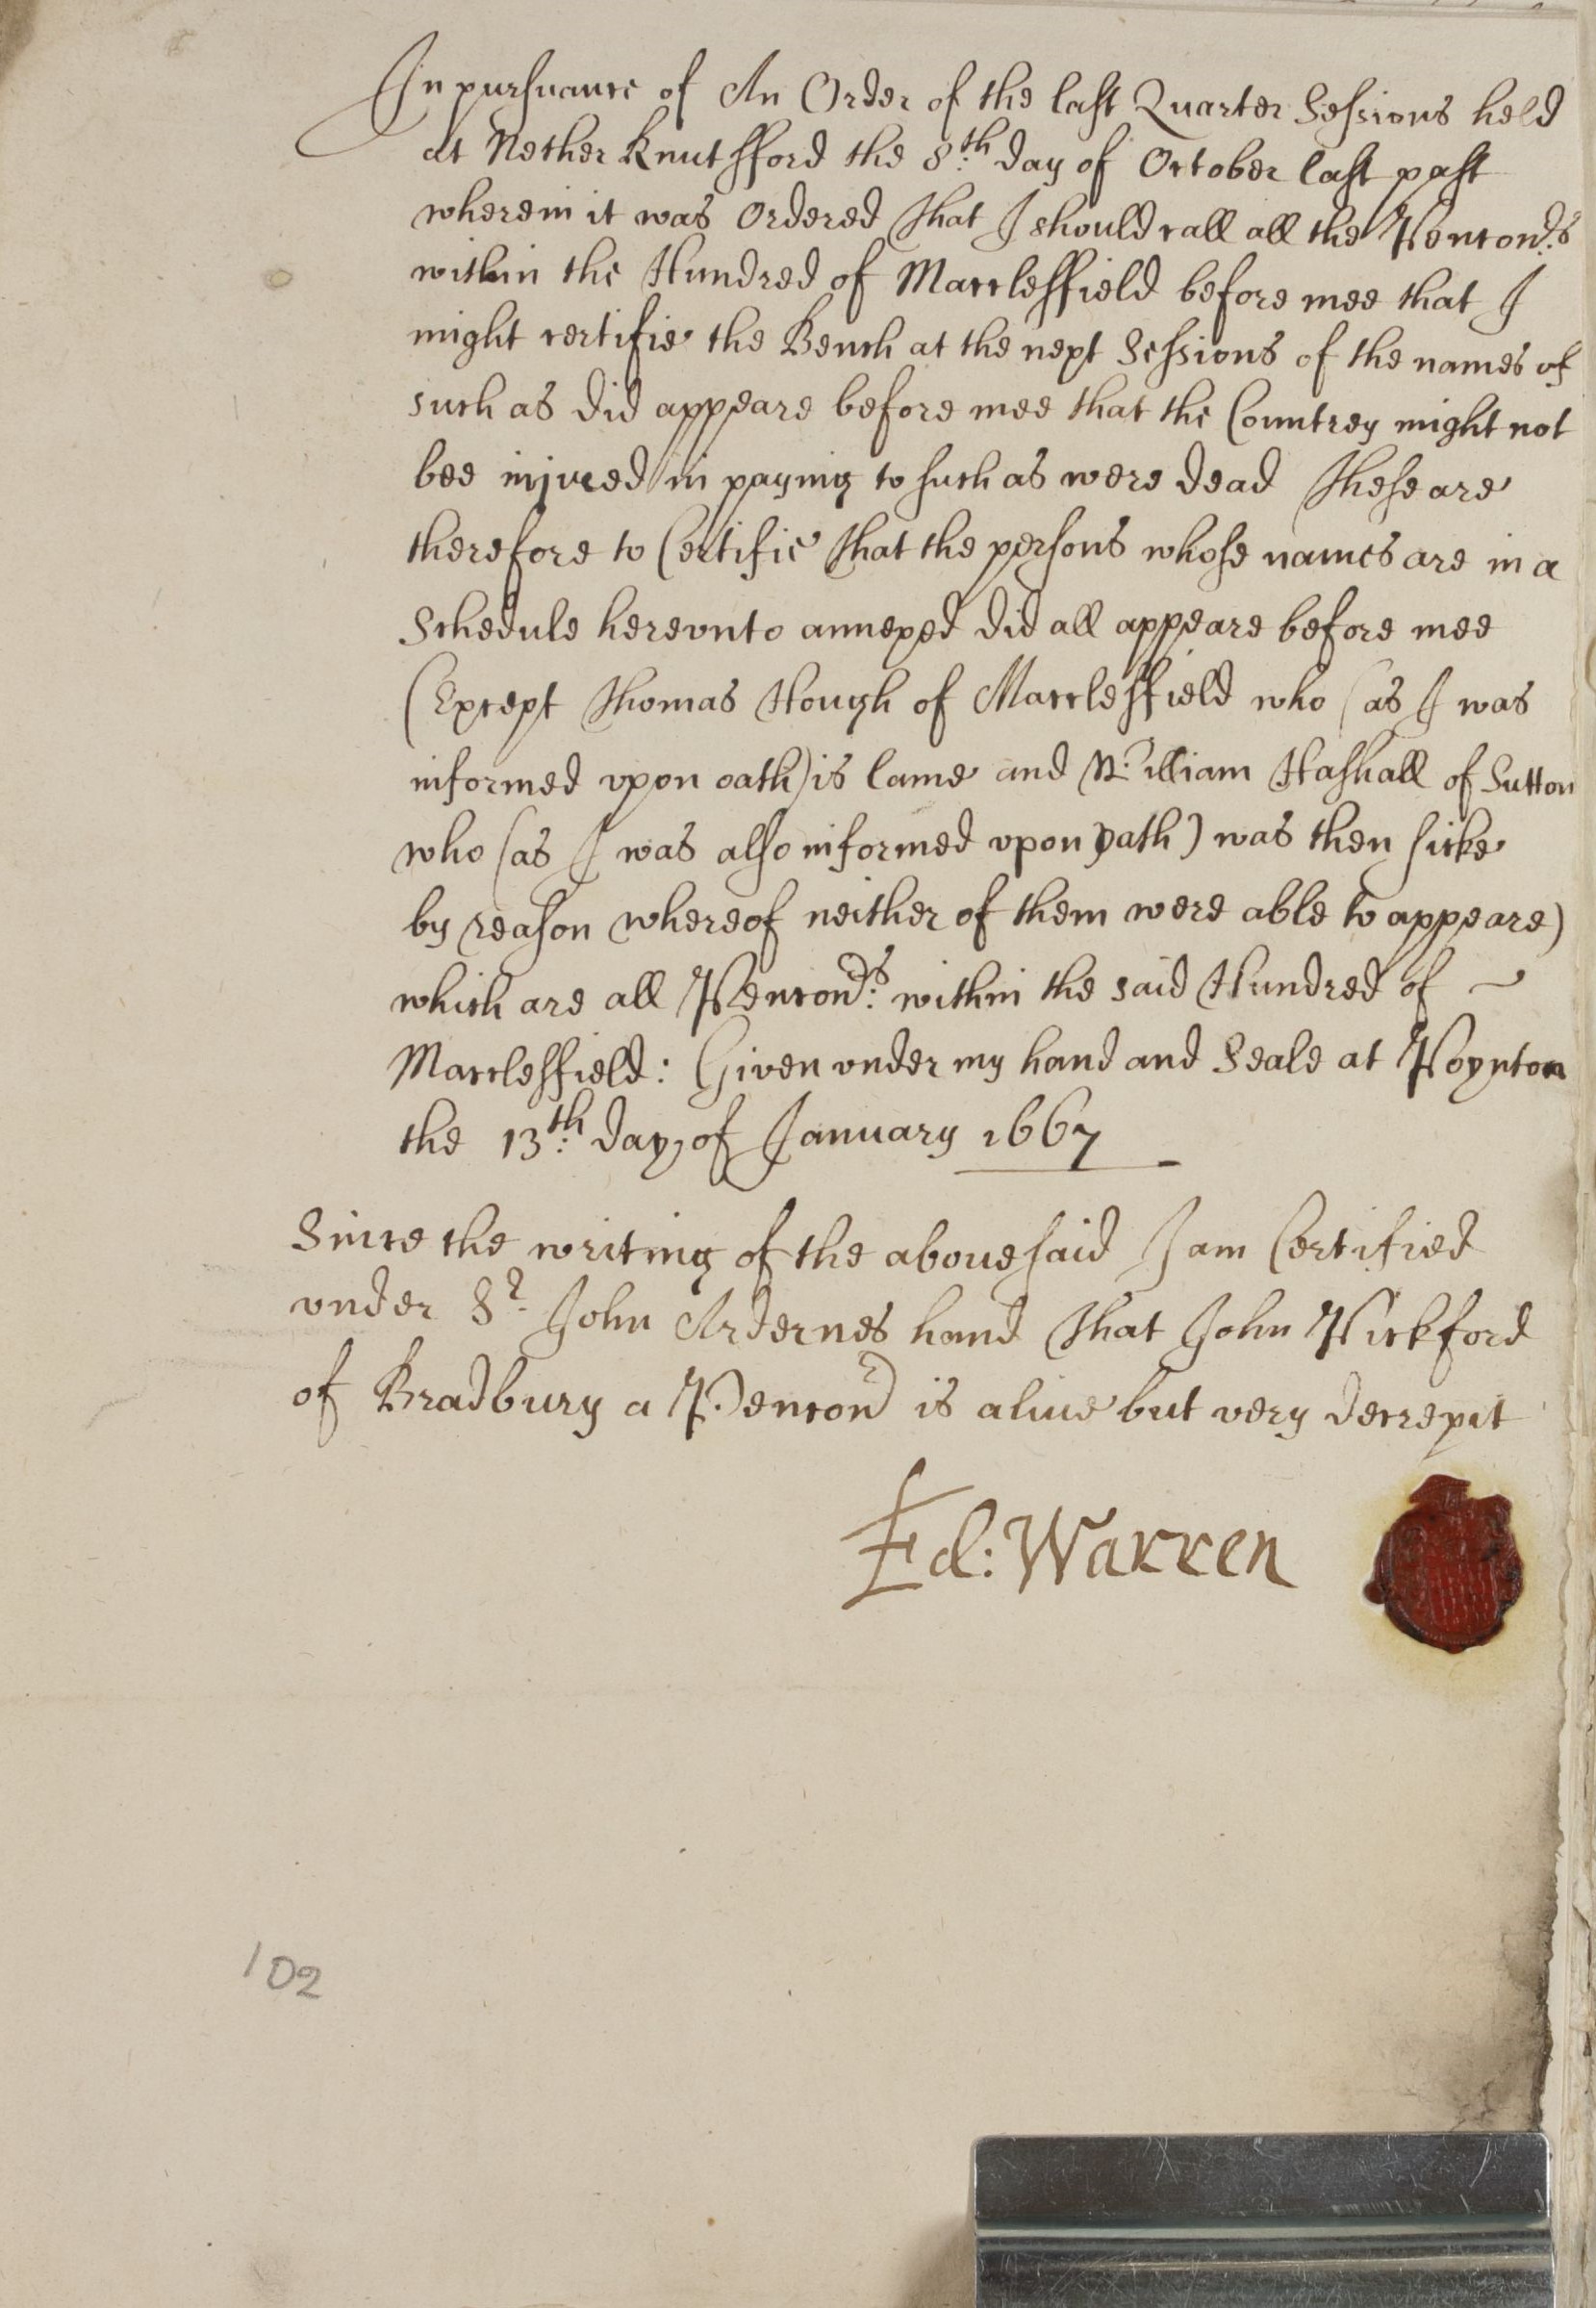 In pursuance of An Order of the last Quarter Sessions held
at Nether Knutsford the 8th: day of October last past
wherein it was Ordered That I should call all the Pencon:ds
within the Hundred of Macclesfield before mee that I
might certifie the Bench at the next Sessions of the names of
such as did appeare before mee that the Countrey might not
bee iniured in paying to such as were dead These are
therefore to Certifie That the persons whose names are in a
Schedule herevnto annexed did all appeare before mee
(Except Thomas Hough of Macclesfield who (as I was
informed vpon oath) is lame and William Hashall of Sutton
who (as I was also informed vpon oath) was then sicke
by reason whereof neither of them were able to appeare)
which are all Pencon:ds within the said Hundred of ~
Macclesfield: Given vnder my hand and Seale at Poynton
the 13th: day of January 1667
Since the writing of the abouesaid I am Certified
vnder Sr. John Ardernes hand That John Pickford
of Bradbury a Pencond is aliue but very decrepit
Ed: Warren
102